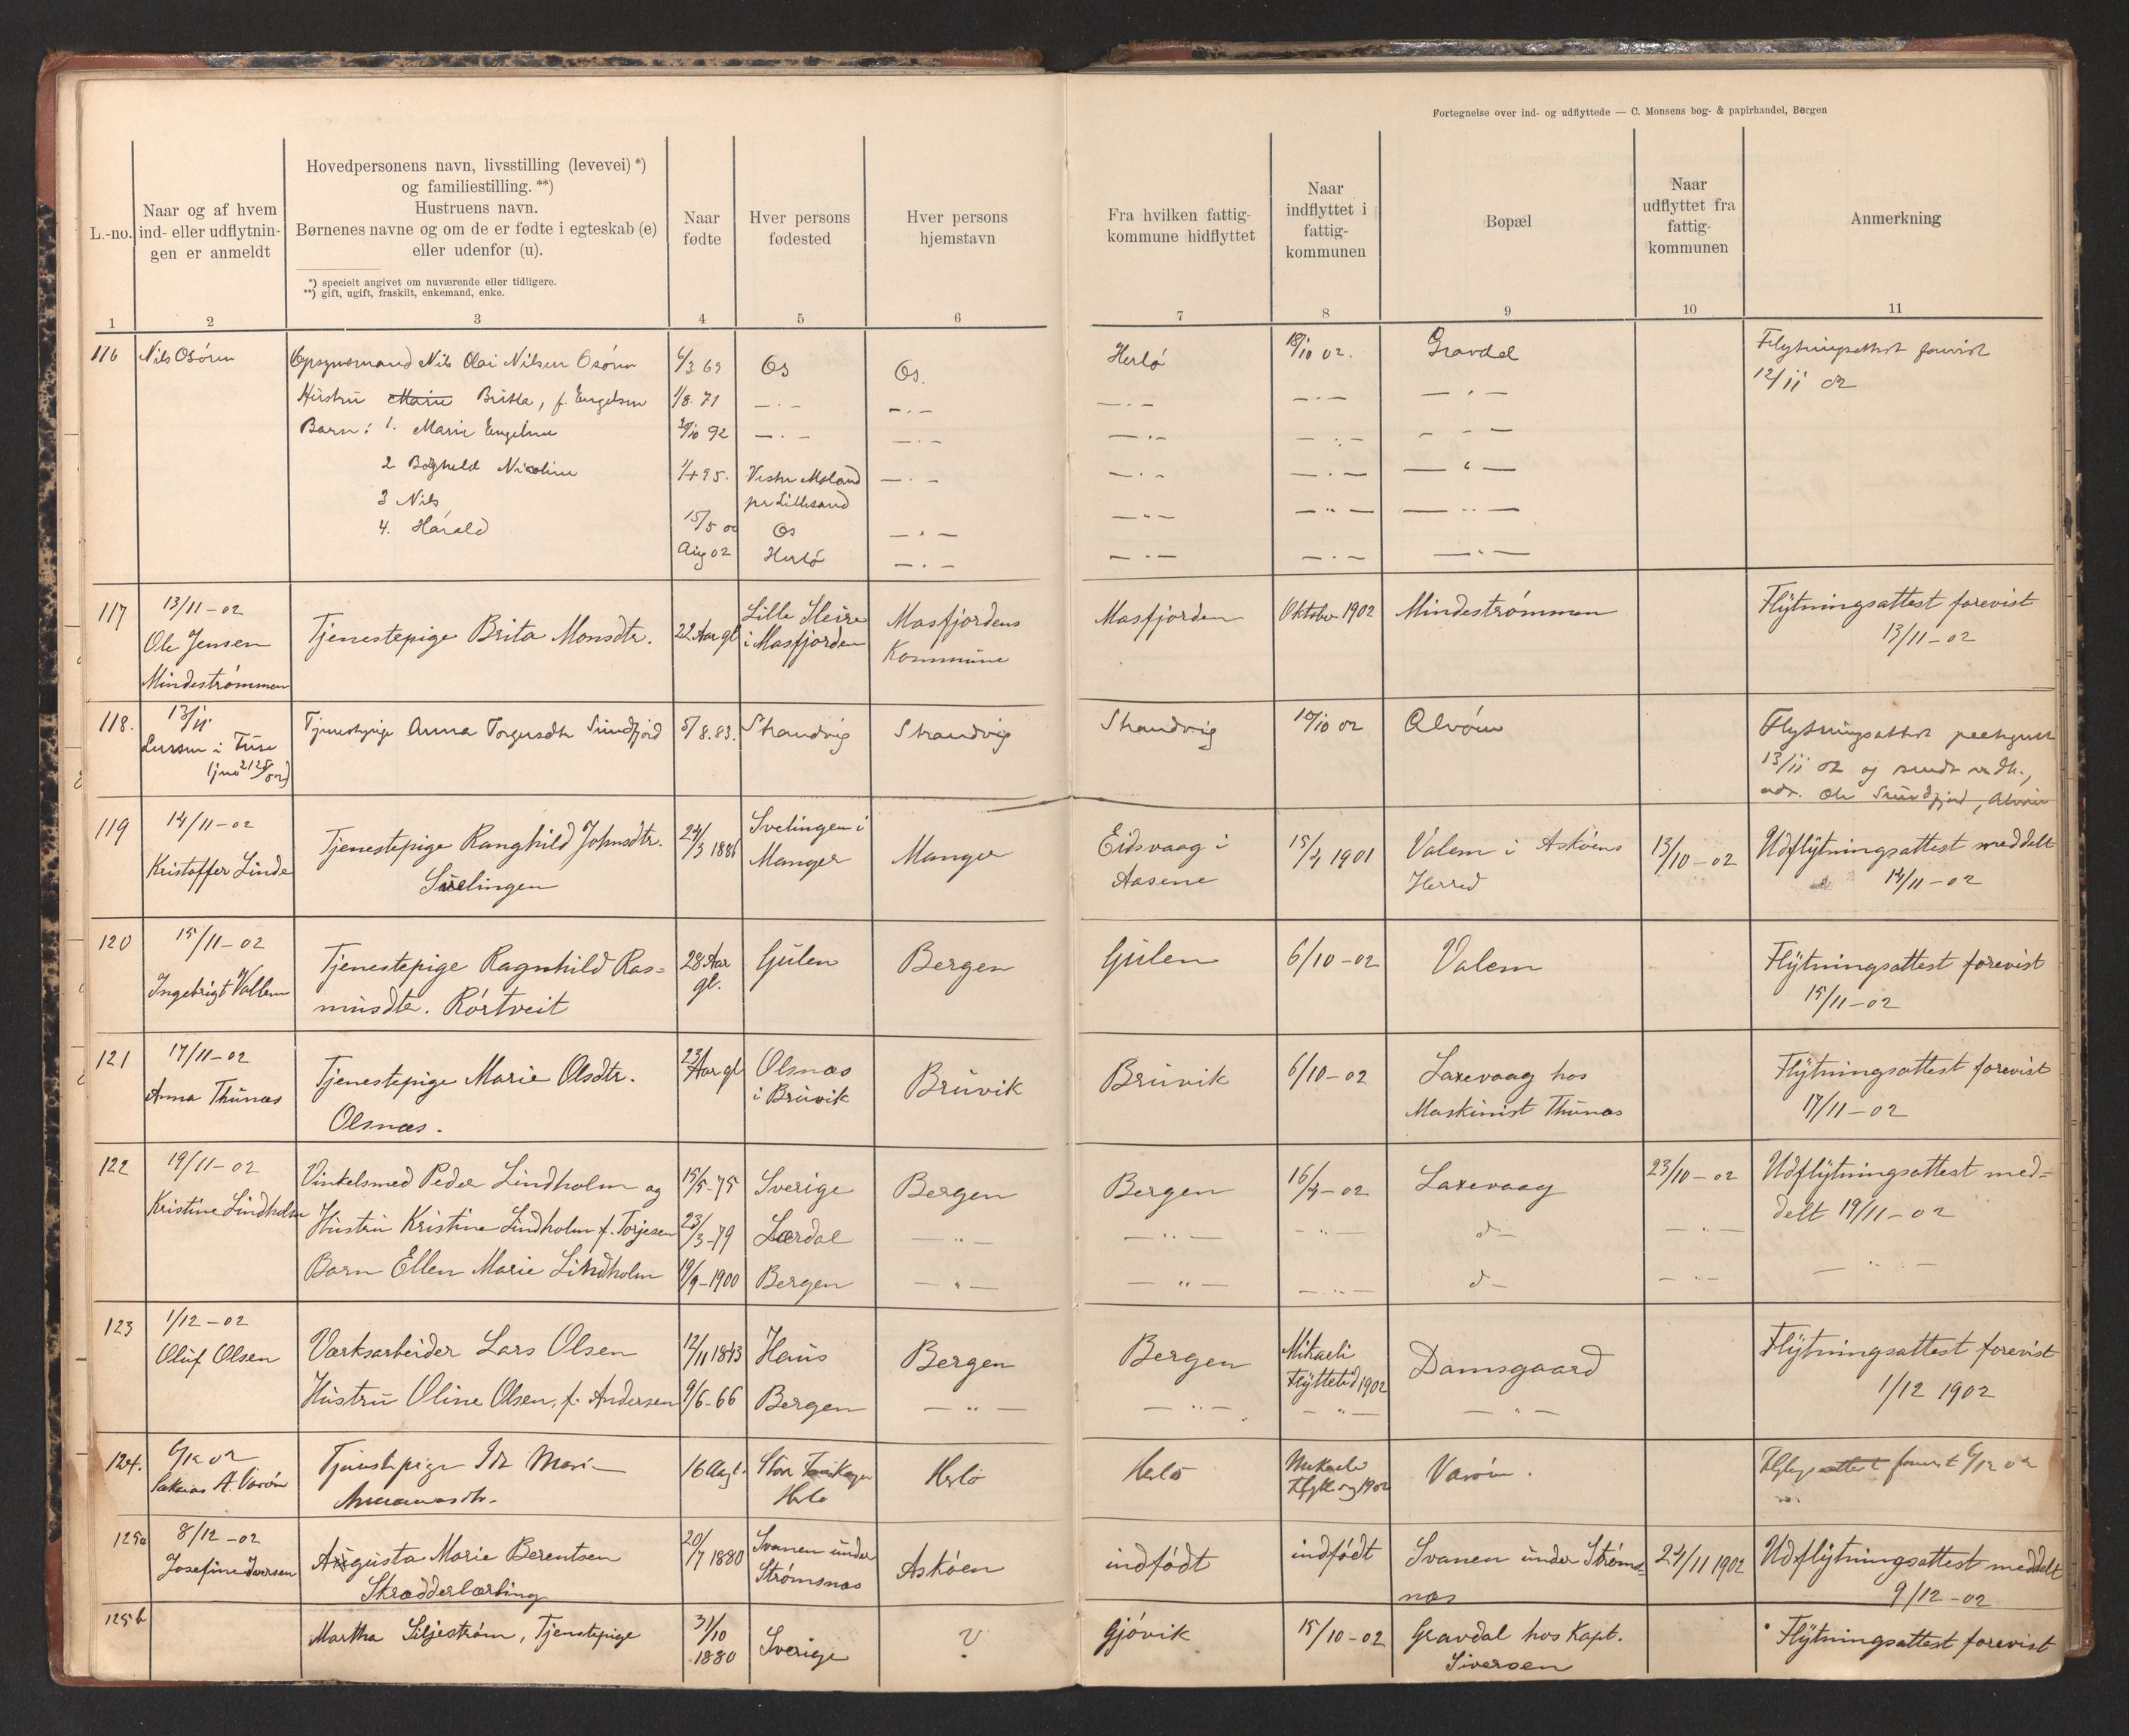 Fortegnelse over ind- og udflyttede — C. Monsens bog- & papirhandel, Bergen
L.-no.
Naar og af hvem
ind- eller udflytnin-
gen er anmeldt
Hovedpersonens navn, livsstilling (levevei) *)
og familiestilling. **)
Hustruens navn.
Børnenes navne og om de er fødte i egteskab (e)
eller udenfor (u).
*) specielt angivet om nuværende eller tidligere.
**) gift, ugift, fraskilt, enkemand, enke.
Naar
fødte
Hver persons
fødested
Hver persons
hjemstavn
Fra hvilken fattig-
kommune hidflyttet
Naar
indflyttet i
fattig-
kommunen
Bopæl
Naar
udflyttet fra
fattig-
kommunen
Anmerkning
1 2 3 4 5 6 7 8 9 10 11
116 Nils Osøren Opsynsmand Nils Olai Nilsen Osøren 6/3 69 Os Os. Herlø 18/10 02. Gravdal Flytningsattest forevist
12/11 02
Hustru Marie Britha, f. Engelsen 1/8. 71 — . — — . — — . — — . — — . —
Barn: 1. Marie Engeline 30/10 92 — . — — . — — . — — . — — — —
2 Borghild Nicoline 1/4 95. Vestre Moland — . — — . — — . — — " —
3 Nils pr Lillesand
15/5 00 Os — . — — " — — " — — " —
4. Harald Aug 02 Herlø — . — — . — — . — — . —
117 13/11 - 02
Ole Jensen
Mindestrømmen
Tjenestepige Brita Monsdtr. 22 Aar gl Lille Sleire
i Masfjorden
Masfjordens
Kommune
Masfjorden Oktober 1902 Mindestrømmen Flytningsattest forevist
13/11 - 02
118. 13/11
Larsen i Fuse
Tjenestepige Anna Torgersdtr Sundfjord 5/8.83. Strandvig Strandvig Strandvig 10/10 02 Alvøen Flytningsattest
13/11 02 og sendt
adr. Ole Sundfjord, Alvøen
119 14/11 - 02
Kristoffer Linde
Tjenestepige Ranghild Johnsdtr.
Svelingen
24/3 1886 Svelingen i
Manger
Manger Eidsvaag i
Aasene
15/4 1901 Valem i Askøens
Herred
13/10 - 02 Udflytningsattest meddelt
14/11 - 02
120 15/11 - 02
Ingebrigt Vallem
Tjenestepige Ragnhild Ras=
musdtr. Rørtveit
28 Aar
gl.
Gulen Bergen Gulen 6/10 - 02 Valem Flytningsattest forevist
15/11 - 02
121 17/11 - 02
Anna Thunæs
Tjenestepige Marie Olsdtr.
Olsnæs.
23 Aar gl Olsnæs
i Bruvik
Bruvik Bruvik 6/10 - 02 Laxevaag hos
Maskinist Thunæs
Flytningsattest forevist
17/11 - 02
122 19/11 - 02
Kristine Lindholm
Vinkelsmed Peder Lindholm og 15/5-75 Sverige Bergen Bergen 16/4 - 02 Laxevaag 23/10 - 02 Udflytningsattest med=
delt 19/11 - 02
Hustru Kristine Lindholm f. Torjesen 23/3-79 Lærdal — " — — " — — " — d — — " —
Barn Ellen Marie Lindholm 19/9-1900 Bergen — " — — " — — " — d — — " — — " —
123 1/12 - 02
Oluf Olsen
Værksarbeider Lars Olsen 12/11 1843 Haus Bergen Bergen Mikaeli
Flyttetid 1902
Damsgaard Flytningsattest forevist
1/12 1902
Hustru Oline Olsen, f. Andersen 9/6-66 Bergen — " — — " — — " — — " —
124. 6/12 02
Sakarias A. Varøn
Tjenestepige Ida Marie
16 Aar gl. Store
Herlø
Herlø Herlø Mikaeli
1902
Varøen. forevist 6/12 02
125a 8/12 - 02
Josefine Iversen
Augusta Marie Berentsen
Skrædderlærling
20/7 1880 Svanen under
Strømsnæs
Askøen indfødt indfødt Svanen under Strøms-
næs
24/11 1902 Udflytningsattest meddelt
9/12 - 02
125b Martha Siljestrøm, Tjenestepige 31/10
1880
Sverige ? Gjøvik 15/10 - 02 Gravdal hos Kapt.
Siversen
Flytningsattest forevist